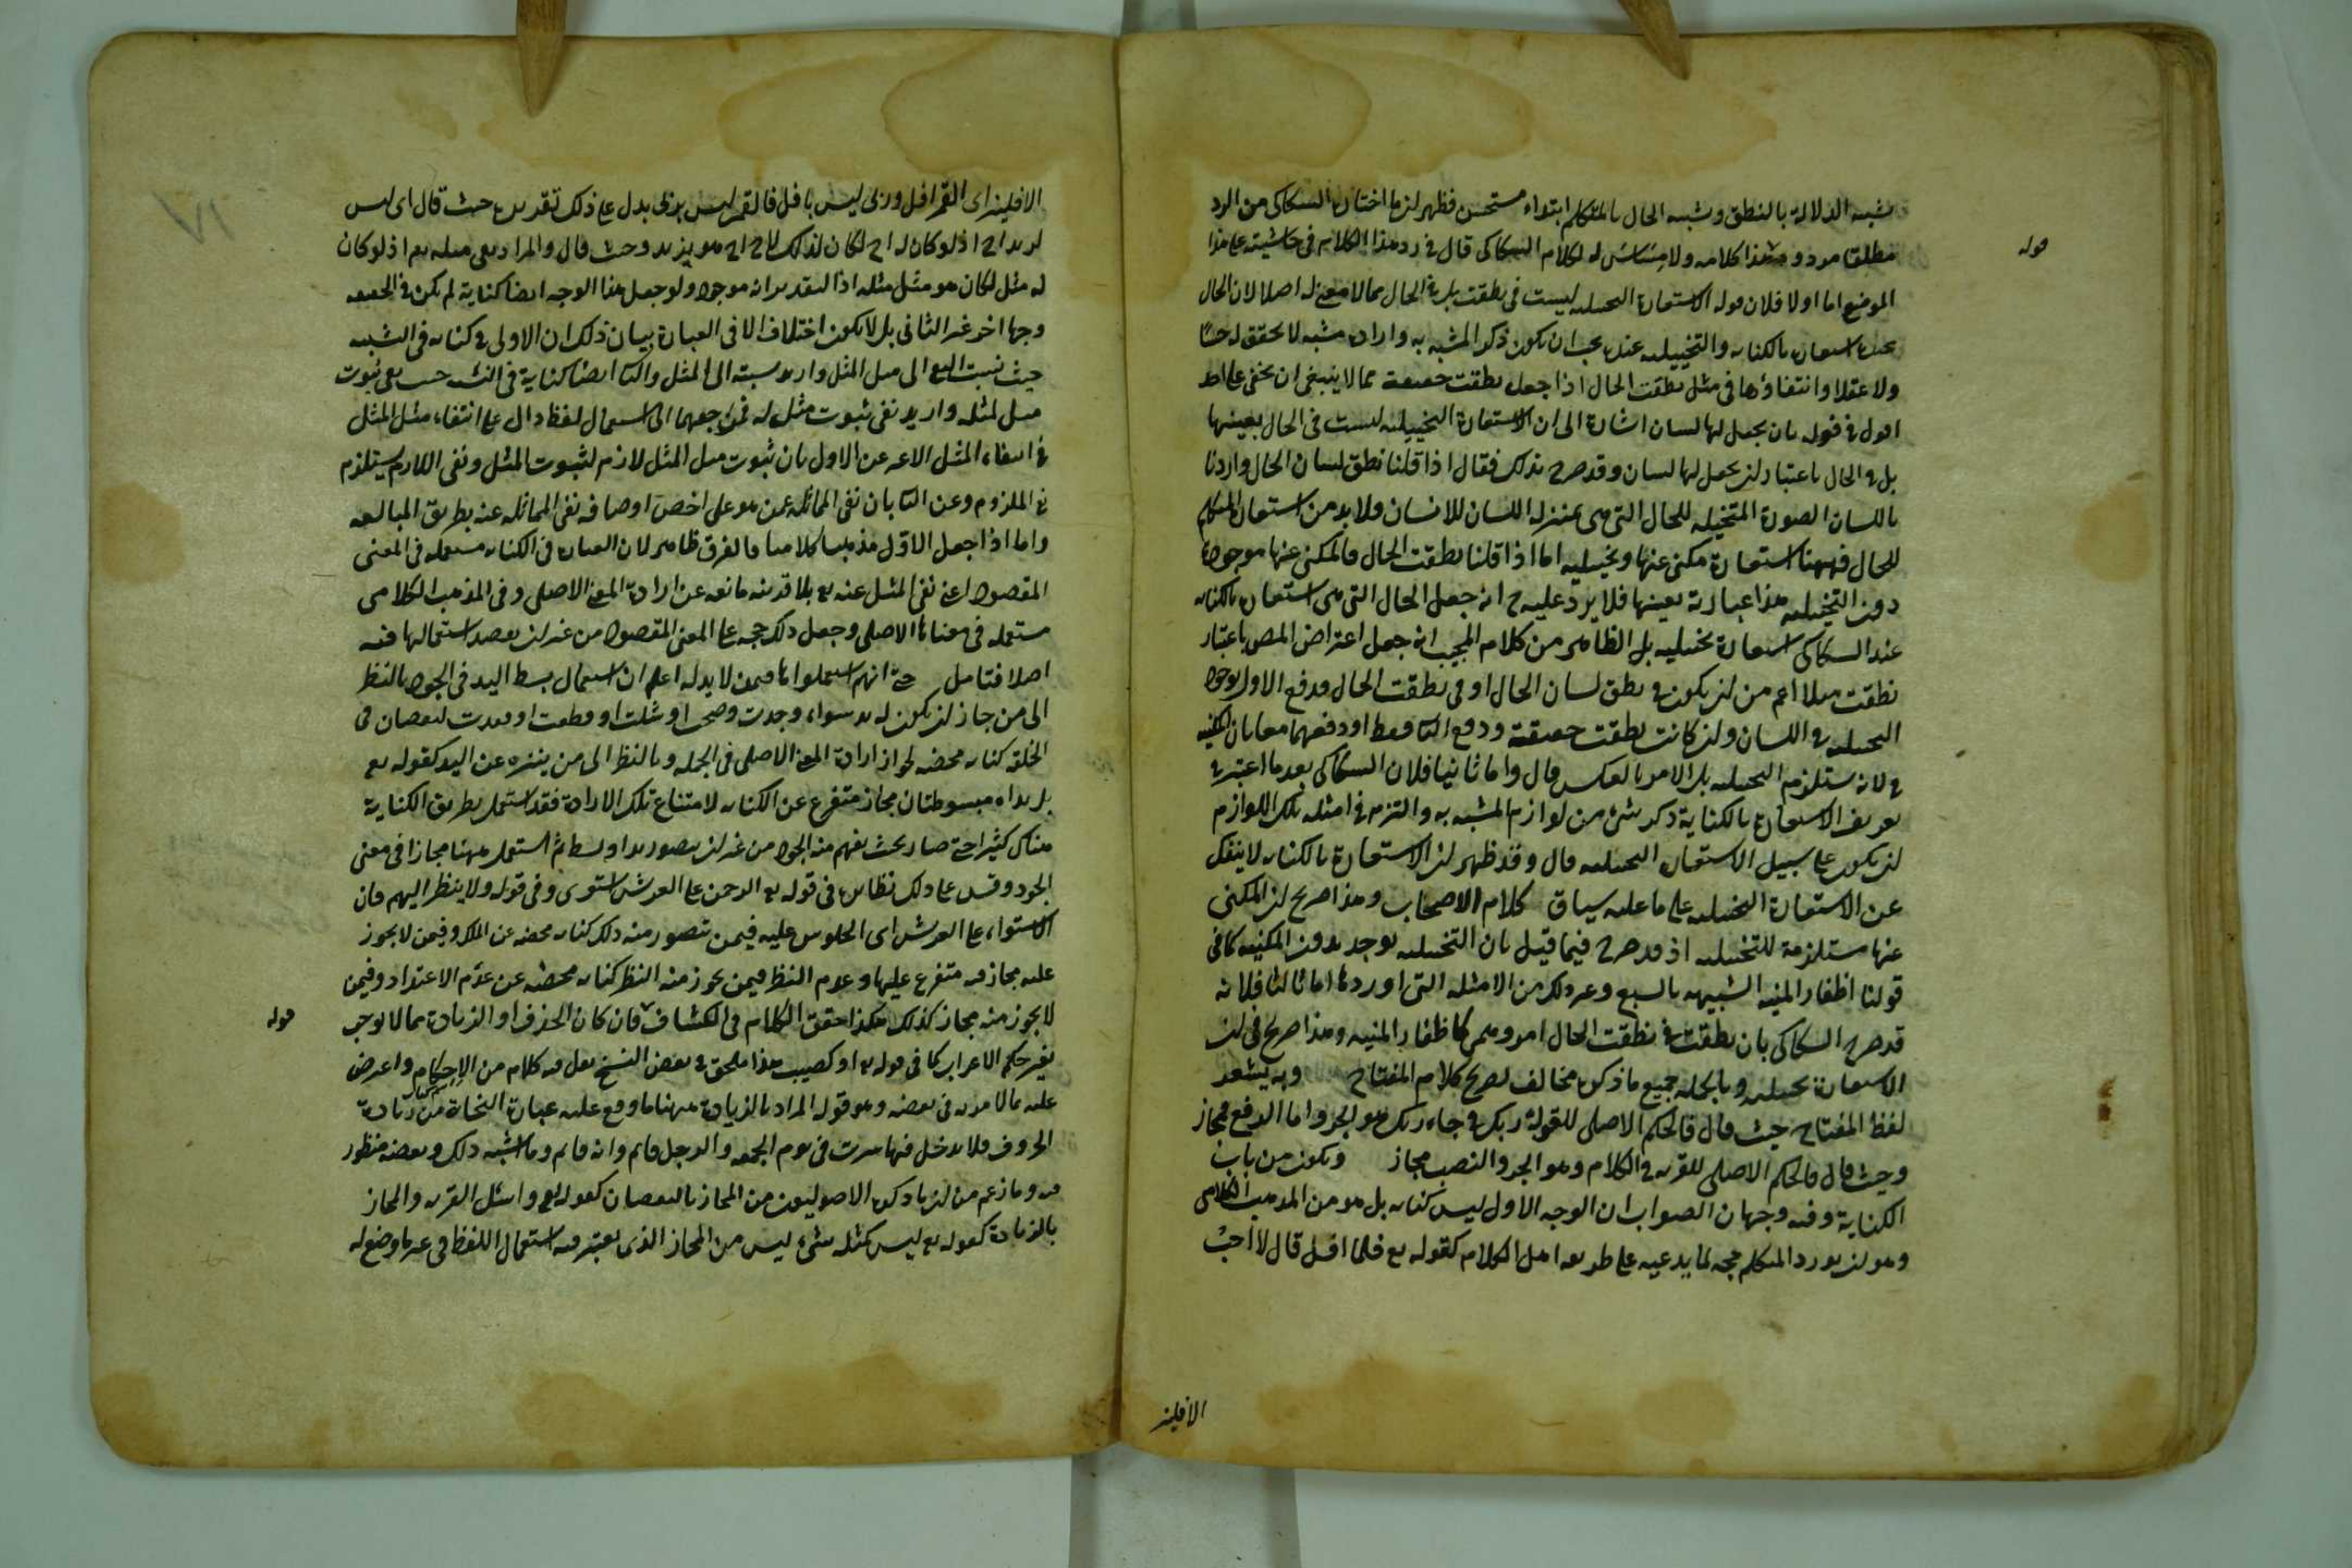 تشبيه الدلالة بالنطق وشبه الحال بالمتكلم ابتداء مستحسن فظهر ان ما اختاره السكاكى من الرد
مطلقا مردود هذا كلامه ولا مساس له لكلام السكاكى قال فى رد هذا الكلام فى حاشيته على هذا
قوله
الموضع اما اولا فلان قوله الاستعارة التخييلية ليست فى نطقت بل فى الحال مما لا معنى له اصلا لان الحال
استعارة بالكناية والتخييلية عنده يجب ان يكون ذكر المشبه به وارادة مشبه لا تحقق له حسا
ولا عقلا وانتفاؤها فى مثل نطقت الحال اذا جعل نطقت حقيقة مما لا ينبغى ان يخفى على احد
اقول فى قوله بان يجعل لها لسان اشارة الى ان الاستعارة التخييلية ليست فى الحال بعينها
بل فى الحال باعتبار ان يجعل لها لسان وقد صرح بذلك فقال اذا قلنا نطق لسان الحال واردنا
باللسان الصورة المتخيلة للحال التى هى بمنزلة اللسان للانسان ولا بد من استعارة المتكلم
للحال فههنا استعارة مكنى عنها وتخييلية اما اذا قلنا نطقت الحال فالمكنى عنها موجودة
دون التخييلية هذا عبارته بعينها فلا يرد عليه ح انه جعل الحال التى هى استعارة بالكناية
عند السكاكى استعارة تخييلية بل الظاهر من كلام المجيب انه جعل اعتراض المص باعتبار
نطقت مثلا اعم من ان يكون فى نطق لسان الحال او فى نطقت الحال فدفع الاول بوجود
التخييلية فى اللسان وان كانت نطقت حقيقة ودفع الثا فقط او دفعهما معا بان المكنية
لا تستلزم التخييلية بل الامر بالعكس قال واما ثانيا فلان السكاكى بعد ما اعتبر فى
تعريف الاستعارة بالكناية ذكر شئ من لوازم المشبه به والتزم فى امثلة تلك اللوازم
ان يكون على سبيل الاستعارة التخييلية قال وقد ظهر ان الاستعارة بالكناية لا ينفك
عن الاستعارة التخييلية على ما عليه سياق كلام الاصحاب وهذا صريح ان المكنى
عنها مستلزمة للتخييلية اذ قد صرح فيما قيل بان التخييلية توجد بدون المكنية كما فى
قولنا اظفار المنية الشبيهة بالسبع وغير ذلك من الامثلة التى اوردها اما ثالثا فلانه
قد صرح السكاكى بان نطقت فى نطقت الحال امر وهمى كاظفار المنية وهذا صريح فى ان
الاستعارة تخييلية وبالجملة جميع ما ذكره مخالف لصريح كلام المفتاح وبه يشعر
لفظ المفتاح حيث قال فالحكم الاصلى للقوله ربك فى جاء ربك هو الجر واما الرفع فمجاز
وحيث قال فالحكم الاصلى للقرية فى الكلام وهو الجر والنصب مجاز وتكون من باب
الكناية وفيه وجهان الصواب ان الوجه الاول ليس كناية بل هو من المذهب الكلامى
وهو ان يورد المتكلم حجة لما يدعيه على طريقة اهل الكلام كقوله تع فلما افل قال لا احب
الافلين
الافلين اى القمر افل وربى ليس بافل فالقمر ليس بربى يدل على ذلك تقديره حيث قال اى ليس
لزيد اخ اذ لو كان له اخ لكان لذلك الاخ اخ هو زيد وحيث قال والمراد نفى مثله تع اذ لو كان
له مثل لكان هو مثل مثله اذ التقدير انه موجود ولو جعل هذا الوجه ايضا كناية لم يكن فى الحقيقة
وجها اخر غير الثانى بل لا يكون اختلاف الا فى العبارة بيان ذلك ان الاولى كناية فى النسبة
حيث نسبت النفى الى مثل المثل واريد نسبته الى المثل والثا ايضا كناية فى النسبة حيث نفى ثبوت
مثل لمثله واريد نفى ثبوت مثل له فمرجعهما الى استعمال لفظ دال على انتفاء مثل المثل
فى انتفاء المثل الا انه عن الاول بان ثبوت مثل المثل لازم لثبوت المثل ونفى اللازم يستلزم
نفى الملزوم وعن الثا بان نفى المماثلة عمن هو على اخص اوصافه نفى المماثلة عنه بطريق المبالغة
واما اذا جعل الاول مذهبا كلاميا فالفرق ظاهر لان العبارة فى الكناية مستعملة فى المعنى
المقصود اعنى نفى المثل عنه تع بلا قرينة مانعة عن ارادة المعنى الاصلى وفى المذهب الكلامى
مستعملة فى معناها الاصلى وجعل ذلك حجة على المعنى المقصود من غير ان يقصد استعمالها فيه
اصلا فتامل حتى انهم استعملوا ها فيمن لا يد له اعلم ان استعمال بسط اليد فى الجود بالنظر
الى من جاز ان يكون له يد سواء وجدت وصحت او شلت او قطعت او فقدت لنقصان فى
الخلقة كناية محضة لجواز ارادة المعنى الاصلى فى الجملة وبالنظر الى من ينزه عن اليد كقوله تع
بل يداه مبسوطتان مجاز متفرع عن الكناية لامتناع تلك الارادة فقد استعمل بطريق الكناية
هناك كثيرا حتى صار بحيث يفهم منه الجود من غير ان يتصور يد او بسط ثم استعمل ههنا مجازا فى معنى
الجود وقس على ذلك نظائره فى قوله تع الرحمن على العرش استوى وفى قوله ولا ينظر اليهم فان
الاستواء على العرش اى الجلوس عليه فيمن تتصور منه ذلك كناية محضة عن الملك وفيمن لا يجوز
عليه مجاز فيه متفرع عليها وعدم النظر فيمن يجوز منه النظر كناية محضة عن عدم الاعتداد وفيمن
لا يجوز منه مجاز كذلك هكذا حقق الكلام فى الكشاف فان كان الحذف او الزيادة مما لا يوجب
قوله
تغير حكم الاعراب كما فى قوله تع او كصيب هذا ملحق فى بعض النسخ نقل فيه كلام من الاحكام واعرض
عليه بما لا مزيد فى بعضه وهو قوله المراد بالزيادة ههنا ما وقع عليه عبارة النحاة من زيادة
الحروف فلا يدخل فيها سرت فى يوم الجمعة والرجل قائم وانه قائم وما اشبه ذلك وبعضه منظور
فيه وما زعم من ان ما ذكره الاصوليون من المجاز بالنقصان كقوله تع واسئل القرية والمجاز
بالزيادة كقوله تع ليس كمثله شئ ليس من المجاز الذى يعتبر فيه استعمال اللفظ فى غير ما وضع له